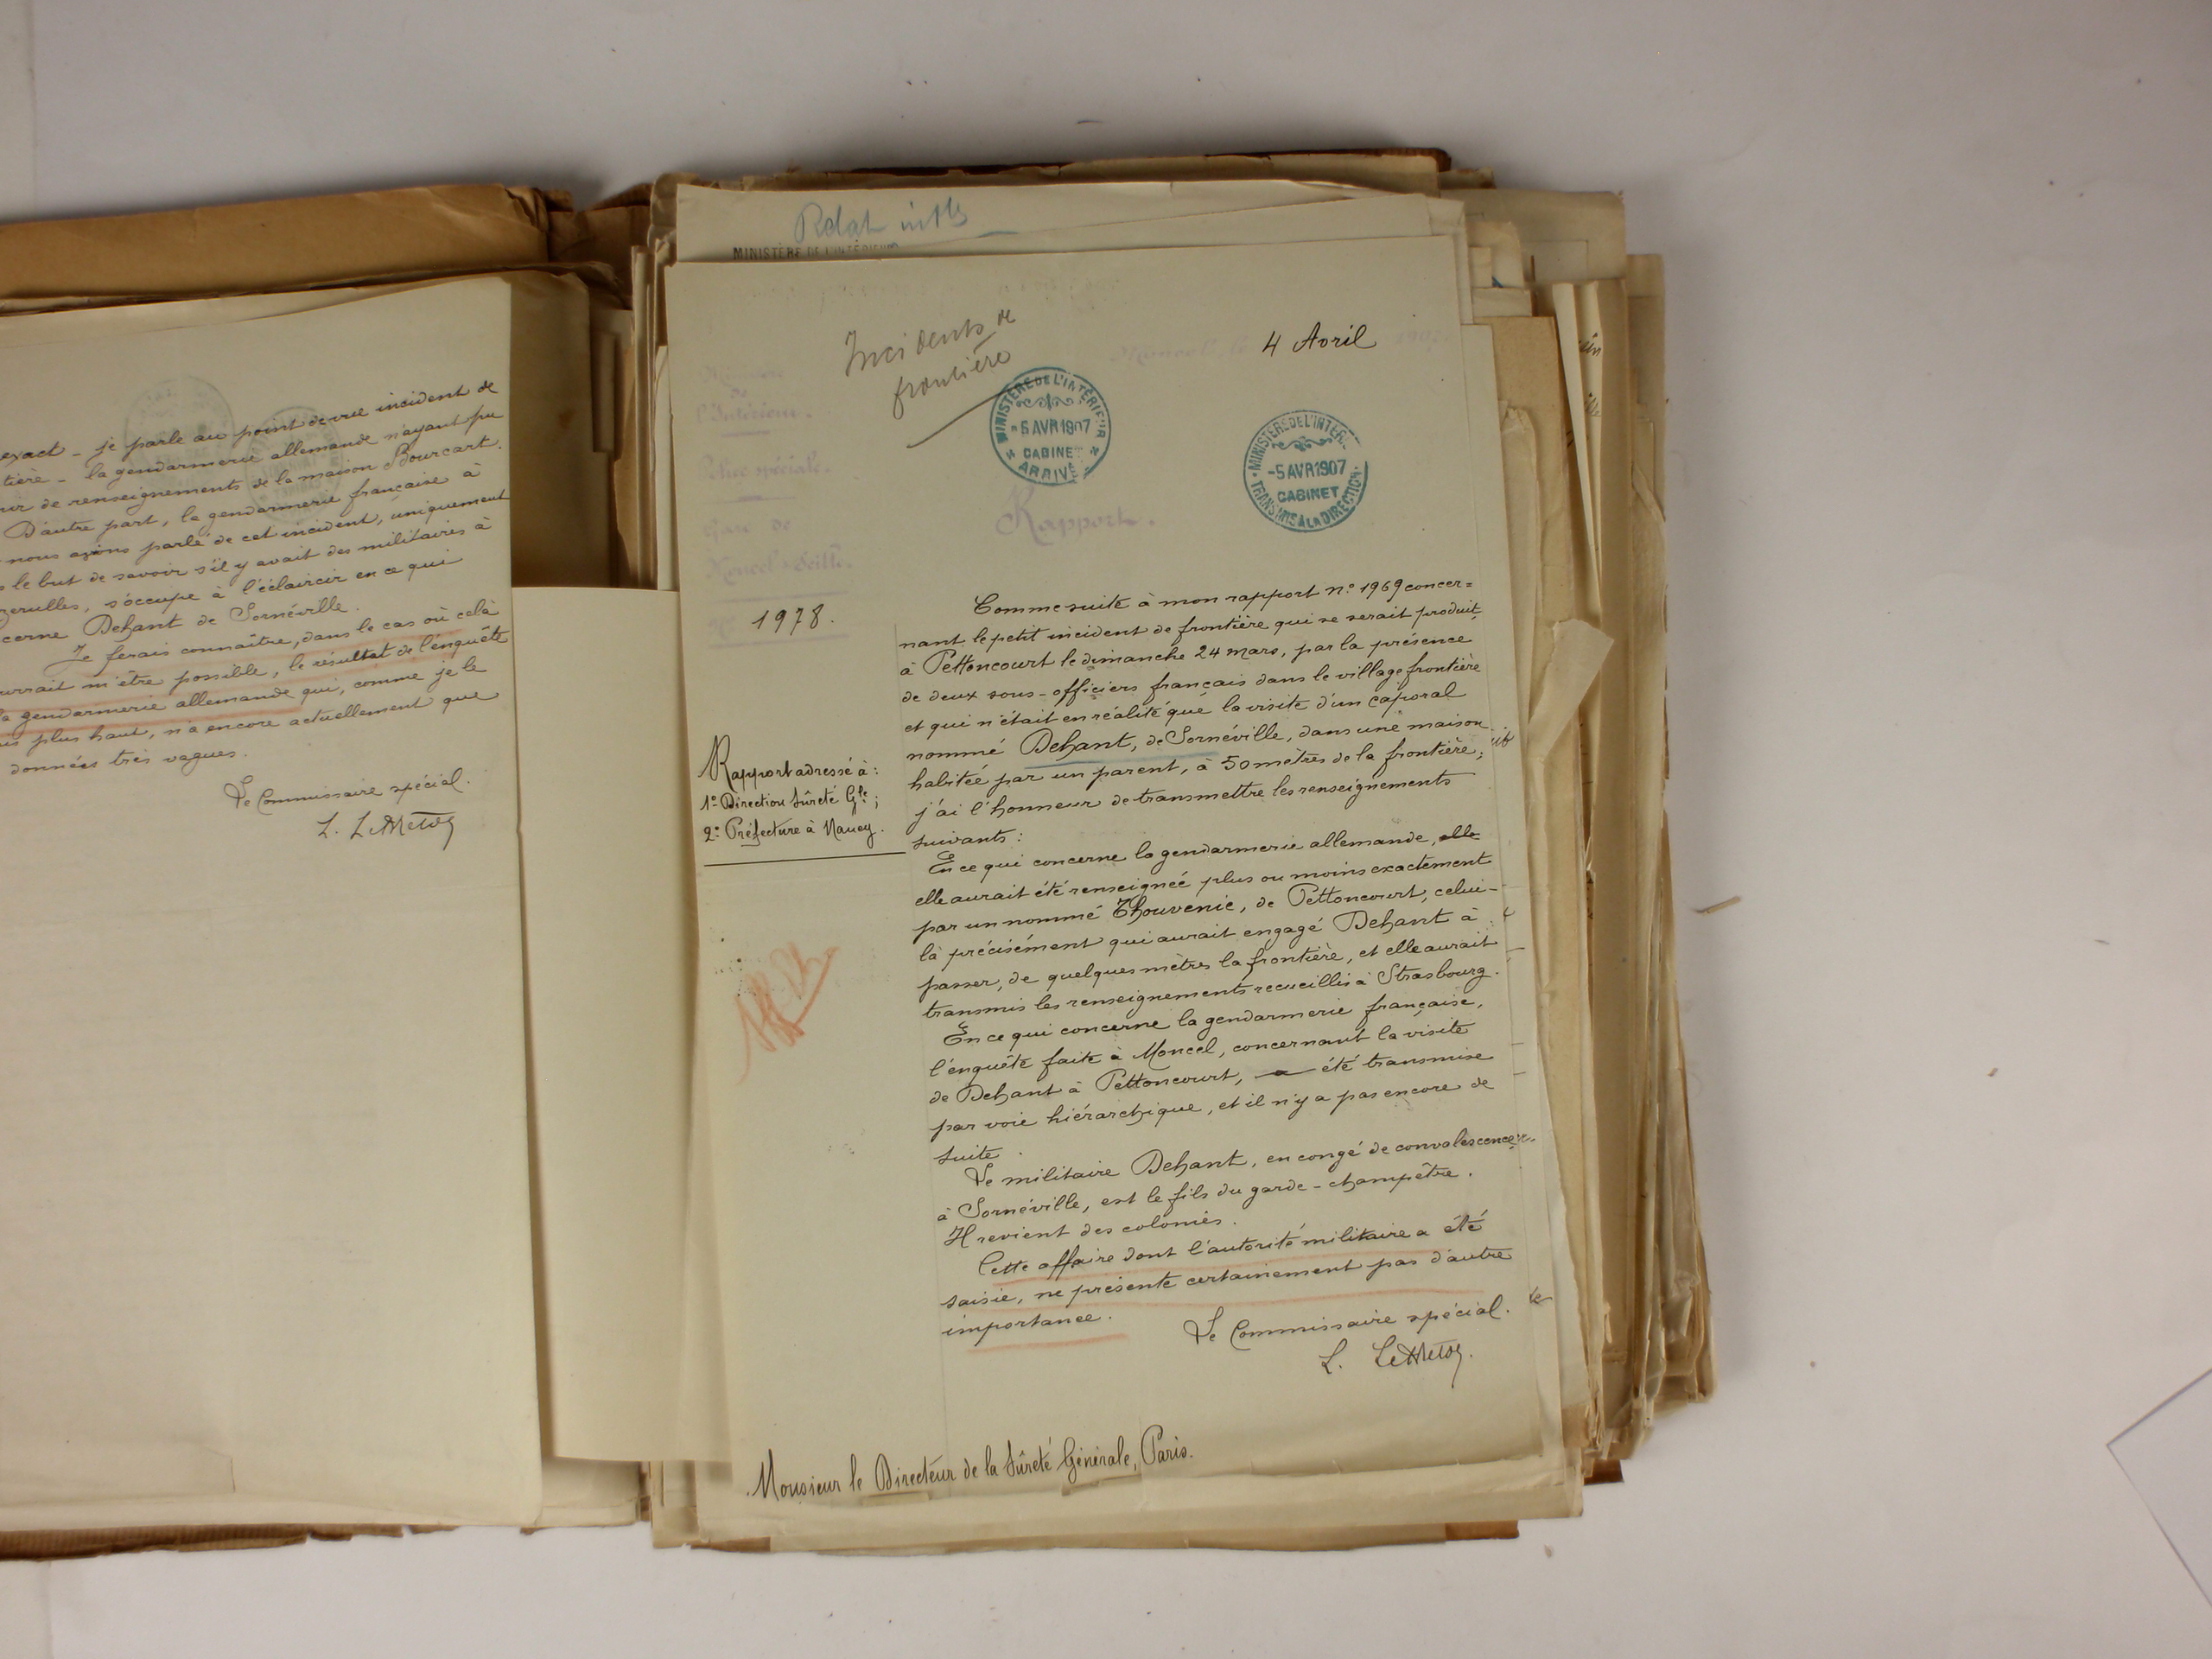 exact - je parle au point de vue incident de
tière - la gendarmerie allemande n'ayant pu
de renseignements de la maison Bourcart.
D'autre part, la gendarmerie française à
nous avions parlé de cet incident, uniquement
le but de savoir s'il y avait des militaires à
zerulles, s'occupe à l'éclaircir en ce qui
cerne Dehant de Sornéville.
Je ferais connaître, dans le cas où celà
urrait m'être possible, le résultat de l'enquête
la gendarmerie allemande qui, comme je le
is plus haut, n'a encore actuellement que
données très vagues.
Le Commissaire spécial.
MINISTÈRE DE L'INTÉRIEUR
Incidents de
frontière
4 Avril
MINISTÈRE DE L'INTÉRIEUR
-5 AVR 1907
CABINET
ARRIVÉE
MINISTÈRE DE L'INTER.
-5 AVR 1907
CABINET
TRANSMIS A LA DIRECTION
Ministère
de
l'Intérieur.
Police spéciale.
Gare de
Moncel s/Seille.
Rapport.
1978.
Rapport adressé à :
1º Direction Sûreté Gle ;
2º Préfecture à Nancy.
Comme suite à mon rapport nº 1969 concer=
nant le petit incident de frontière qui se serait produit,
à Pettoncourt le dimanche 24 mars, par la présence
de deux sous-officiers français dans le village frontière
et qui n'était en réalité que la visite d'un caporal
nommé Dehant, de Sornéville, dans une maison
habitée par un parent, à 50 mètres de la frontière,
j'ai l'honneur de transmettre les renseignements
suivants :
En ce qui concerne la gendarmerie allemande, elle
elle aurait été renseignée plus ou moins exactement
par un nommé Thouvenic, de Pettoncourt, celui-
là précisément qui aurait engagé Dehant à
passer, de quelques mètres la frontière, et elle aurait
transmis les renseignements recueillis à Strasbourg.
En ce qui concerne la gendarmerie française,
l'enquête faite à Moncel, concernant la visite
de Dehant à Pettoncourt, a été transmise
par voie hiérarchique, et il n'y a pas encore de
suite.
Le militaire Dehant, en congé de convalescence
à Sornéville, est le fils du garde-champêtre.
Il revient des colonies.
Cette affaire dont l'autorité militaire a été
saisie, ne présente certainement pas d'autre
importance.
Le Commissaire spécial.
Monsieur le Directeur de la Sûreté Générale, Paris.